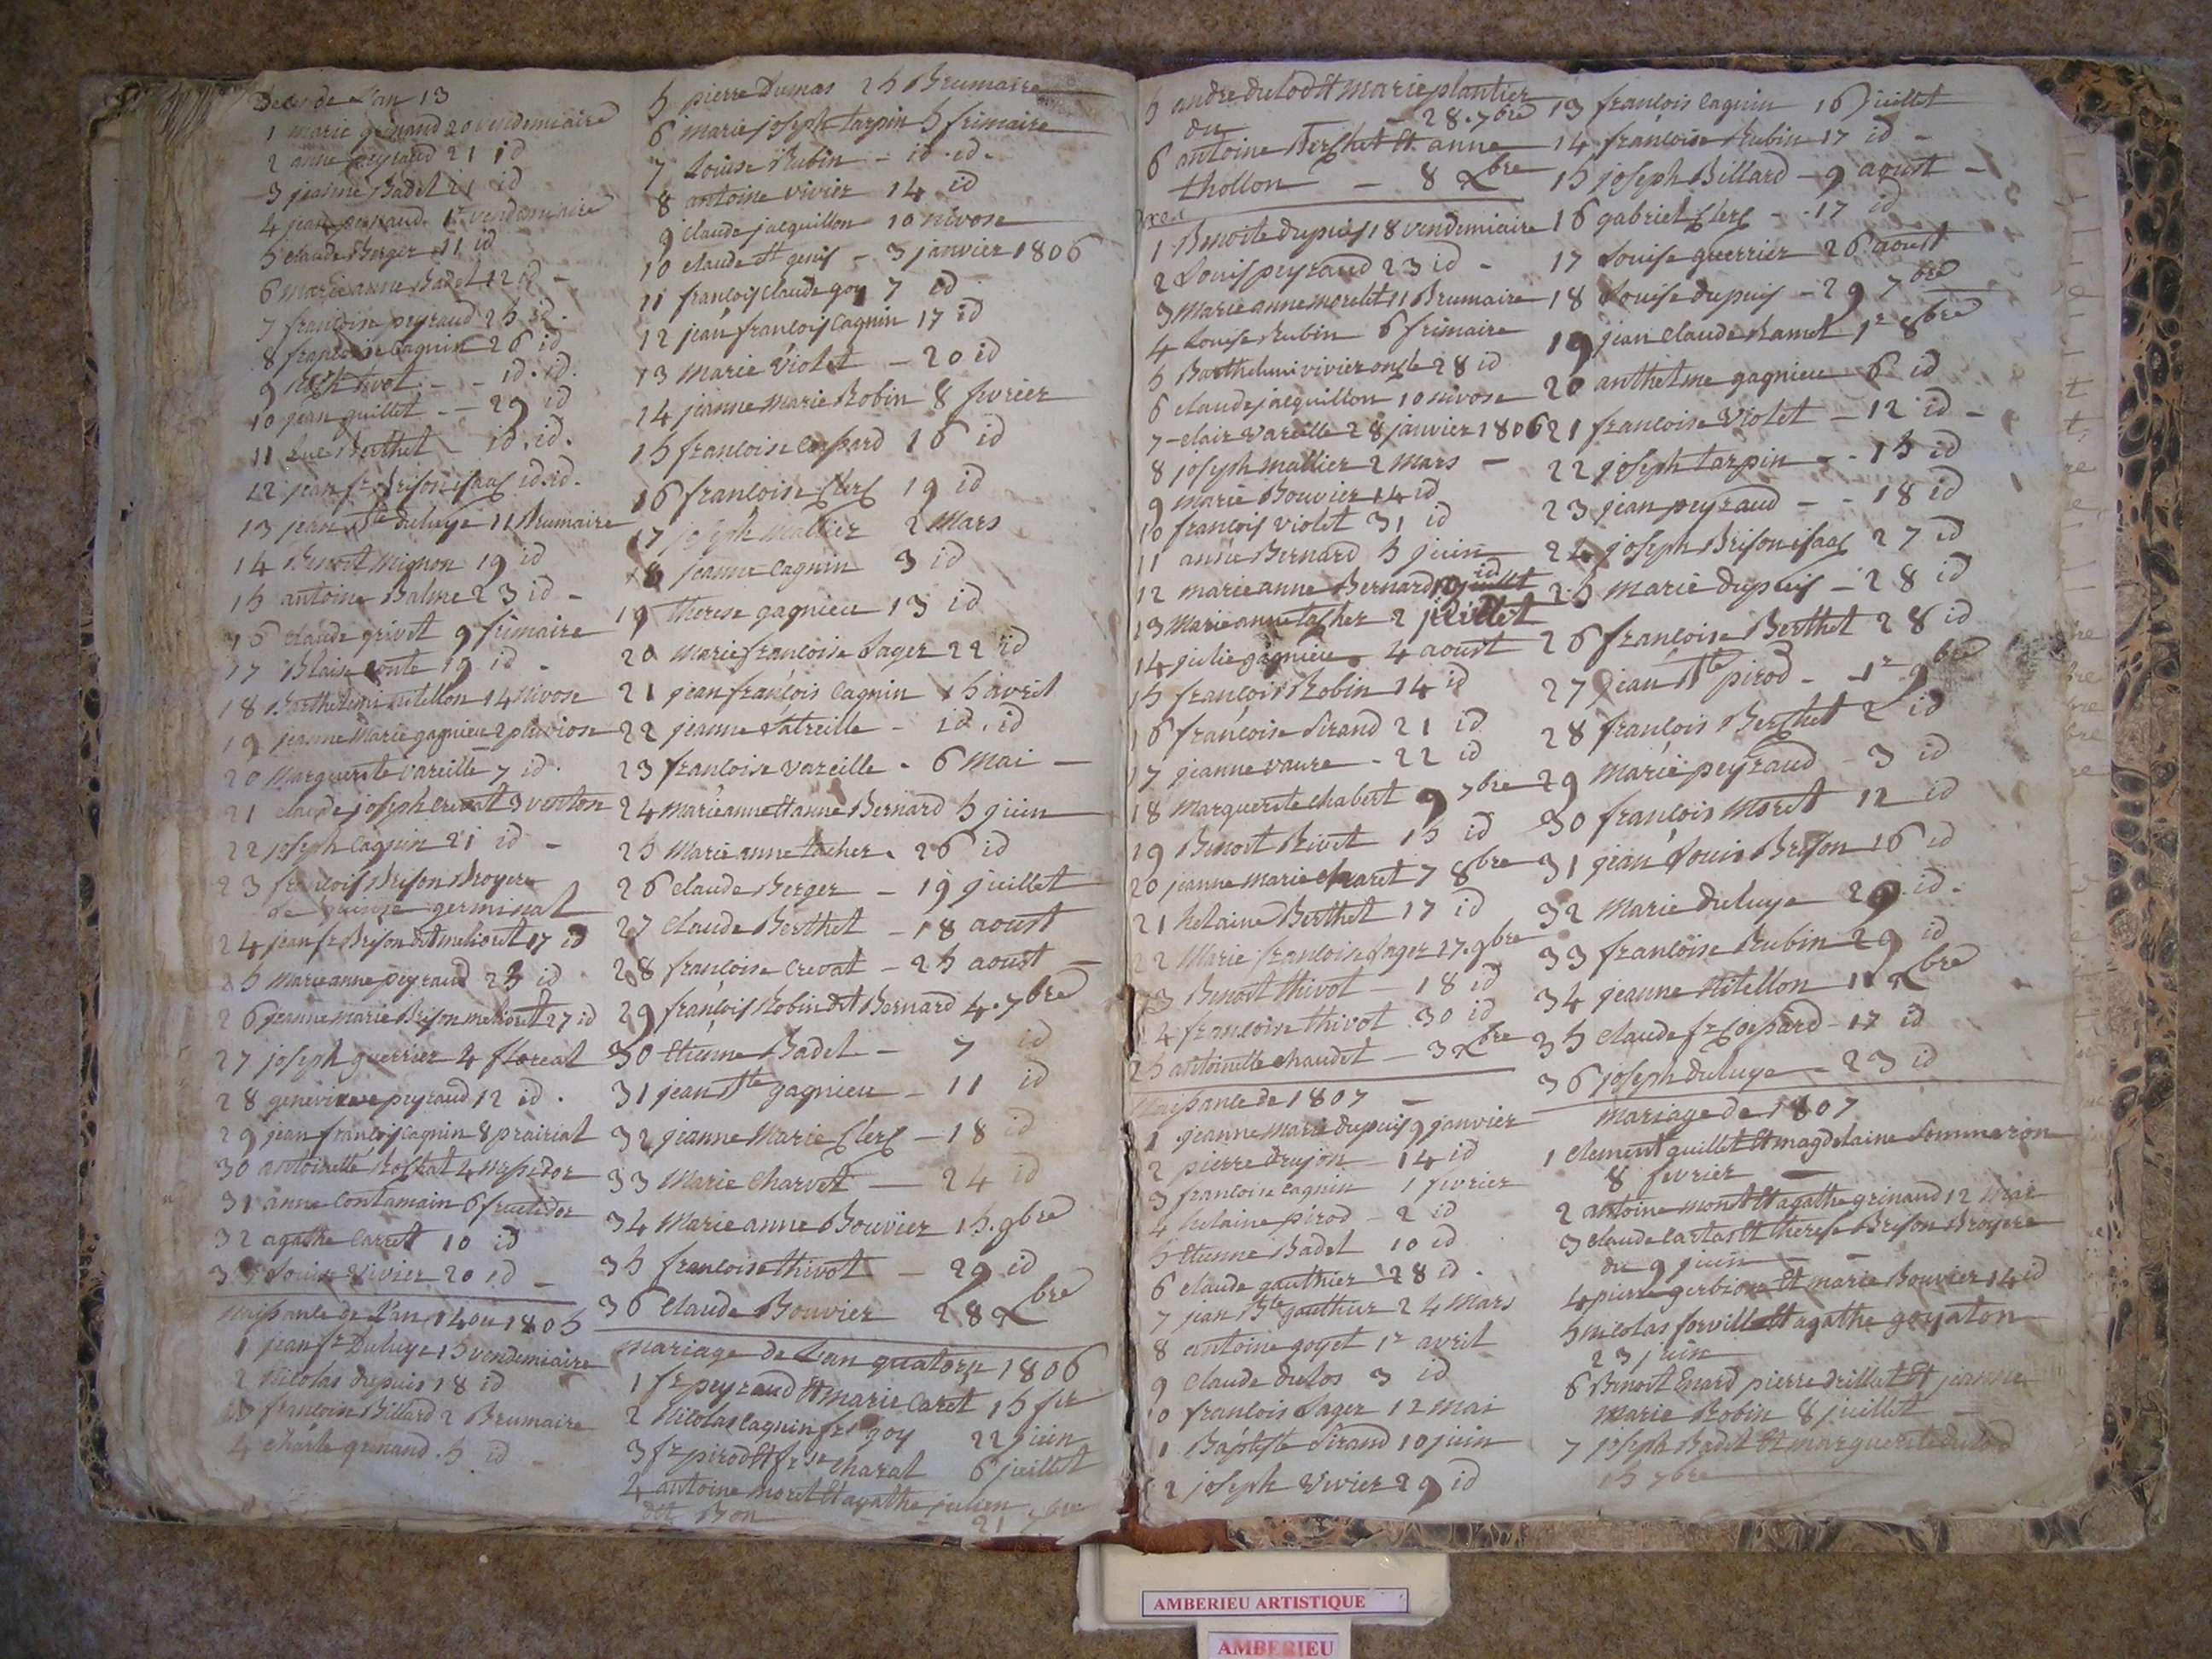 Deces de l'an 13
1 marie grinand 20 vendemiaire
2 anne peyraud 21 id
3 jeanne Badel 21 id
4 jean peyraud 1er vendemiaire
5 claude Berger 11 id
6 marie anne Badel 12 id -
7 francoise peyraud 25 id.
8 francoise Cagnin 26 id
9 thivol - - id. id.
10 jean guillet - - 29 id
11 Luc Berthet - id. id.
12 jean fr Brison isaac id. id.
13 jean Bte duluye 11 Brumaire
14 Benoit Mignon 19 id
15 antoine Balme 23 id -
16 claude grivet 9 frimaire
17 Blaise Conte 19 id -
18 Barthelemi titellon 14 nivose
19 jeanne Marie gagnieu 2 pluviose
20 Marguerite vareille 7 id.
21 claude joseph Crevat 3 ventose
22 joseph Cagnin 21 id -
23 francois Brison Broyere
germinal
24 jean fr Brison dit melioret 17 id
25 Marie anne peyraud 23 id
26 jeanne marie Brison melioret 27 id
27 joseph guerrier 4 floreal
28 genevieve peyraud 12 id.
29 jean francois Cagnin 8 prairial
30 antoinette Rochat 4 messidor
31 anne Contamain 6 fructidor
32 agathe Carret 10 id
33 Louise Vivier 20 id -
Naissance de l'an 14 ou 1805
1 jean fr Duluye 15 vendemiaire
2 Nicolas dupuis 18 id
3 francoise Billard 2 Brumaire
4 charle grinand. 5 id -
5 pierre Dumas 25 Brumaire
6 marie joseph tarpin 5 frimaire
7 Louise Rubin - id. id.
8 antoine vivier 14 id
9 claude jacquillon 10 nivose
10 claude st genis - 3 janvier 1806
11 francois claude goy 7 id
12 jean francois Cagnin 17 id
13 Marie Violet - 20 id
14 jeanne Marie Robin 8 fevrier
15 francoise Cospard 16 id
16 francoise Clerc 19 id
17 joseph Mallier 2 Mars
18 jeanne Cagnin 3 id
19 therese gagnieu 13 id
20 Marie francoise Sager 22 id
21 jean francois Cagnin 15 avril
22 jeanne Latreille - id. id
23 francoise vareille - 6 Mai -
24 Marie anne et anne Bernard 5 juin
25 Marie anne tacher. 26 id
26 claude Berger - 19 juillet
27 Claude Berthet - 18 aoust
28 francoise Crevat - 25 aoust -
29 francois Robin dit Bernard 4. 7bre
30 Etienne Badel - 7 id
31 jean Bte gagnieu - 11 id
32 jeanne Marie Clerc - 18 id
33 Marie Charvet - 24 id
34 Marie anne Bouvier 15. 9bre
35 francoise thivot - 29 id
36 Claude Bouvier 28 Xbre
Mariage de L'an quatorze 1806
1 fr peyraud et marie Caret 15 fer
2 Nicolas Cagnin frse goy 22 juin
3 fr pirod et frse charat 6 juillet
4 antoine moret et agathe julien
dit Bon 21
5 andre dulod et marie plantier
du - 28. 7bre
6 antoine Berchet et anne
thollon - 8 Xbre
1 Benoite dupuis 18 vendemiaire
2 Louis peyraud 23 id -
3 Marie anne morelet 11 Brumaire
4 Louise Rubin 6 frimaire
5 Barthelemi vivier oncle 28 id
6 claude jacquillon 10 nivose
7 clair vareille 28 janvier 1806
8 joseph mallier 2 mars -
9 marie Bouvier 14 id
10 francois violet 31 id
11 anne Bernard 5 juin
12 marie anne Bernard id
13 Marie anne tacher 2 juillet
14 julie gagnieu. 4 aoust
15 francois Robin 14 id
16 francoise Sirand 21 id
17 jeanne vaure - 22 id
18 Marguerite chabert 9 7bre
19 Benoit Rivet 15 id
20 jeanne marie charet 7 8bre
21 helaine Berthet 17 id
22 Marie francoise Sager 17. 9bre
23 Benoit thivot - 18 id
24 francoise thivot 30 id
25 antoinette chaudet - 3 Xbre
Naissance de 1807 -
1 jeanne marie dupuis 9 janvier
2 pierre drujon - 14 id
3 francoise Cagnin 1 fevrier
4 helaine pirod - 2 id
5 Etienne Badel 10 id
6 claude gauthier 28 id.
7 jean Bte gauthier 24 Mars
8 antoine goyet 1er avril
9 Claude dulos 3 id
10 francois Sager 12 mai
11 Baptiste Sirand 10 juin
12 joseph Vivier 29 id
13 francois Cagnin 16 juillet
14 francoise Rubin 17 id -
15 joseph Billard - 9 aoust -
16 gabriel Clerc - - 17 id
17 Louise guerrier 26 aoust
18 Louise dupuis - 29 7bre
19 jean Claude Ramet 1er 8bre
20 anthelme gagnieu 6 id
21 francoise Violet - 12 id -
22 joseph tarpin - - 15 id
23 jean peyraud - - 18 id
24 joseph Brison isaac 27 id
25 Marie dupuis - 28 id
26 francoise Berthet 28 id
27 jean Bte pirod - 1er 9bre
28 francois Berchet 2 id
29 Marie peyraud - 3 id
30 francois Moret 12 id
31 jean Louis Brison 16 id
32 Marie duluye 29. id.
33 francoise Rubin 29 id
34 jeanne titellon 11 Xbre
35 Claude fr Cospard - 17 id
36 joseph duluye - 23 id
Mariage de 1807
1 Clement guillet et magdelaine Sommeron
8 fevrier -
2 antoine mont et agathe grinand 12 mai
3 claude Cartas et therese Brison Broyere
du 9 juin -
4 pierre gerbion et marie Bouvier 14 id
5 nicolas forville et agathe goyaton
23 juin
6 Benoit Enard pierre drillet et jeanne
Marie Robin 8 juillet -
7 joseph Badel et marguerite dulod
15 7bre
AMBERIEU ARTISTIQUE
AMBERIEU